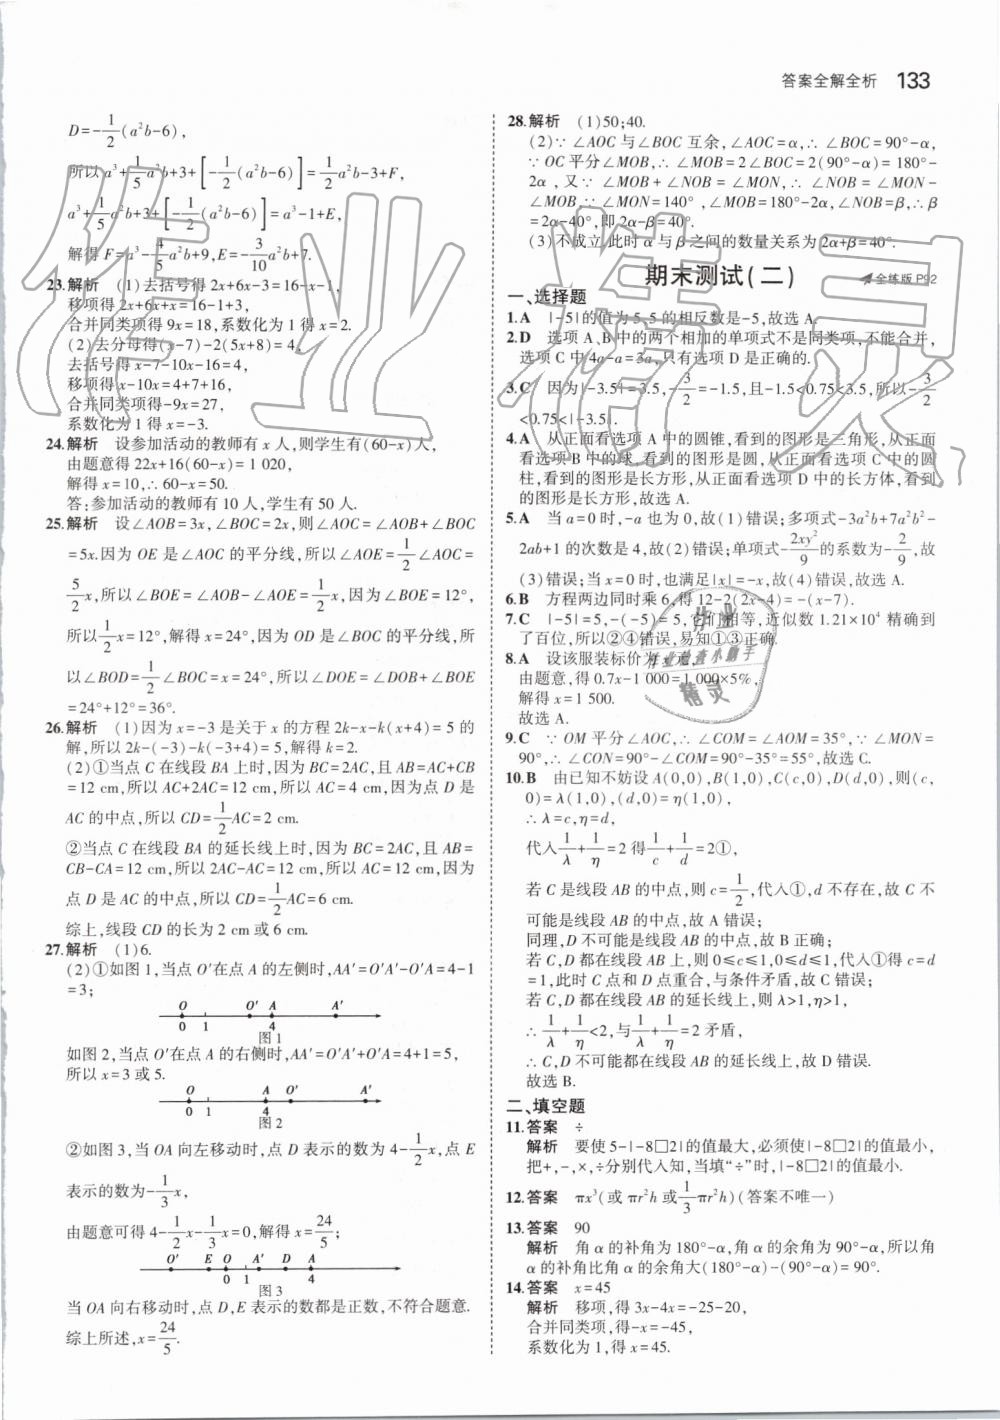 答案全解全析 133
D=-1/2(a²b-6),
所以 a³+1/5a²b+3+[-1/2(a²b-6)]=1/2a²b-3+F,
a³+1/5a²b+3+[-1/2(a²b-6)]=a³-1+E,
解得 F=a³-4/5a²b+9,E=-3/10a²b+7.
23.解析 (1)去括号得 2x+6x-3=16-x-1,
移项得 2x+6x+x=16-1+3,
合并同类项得 9x=18,系数化为 1 得 x=2.
(2)去分母得(x-7)-2(5x+8)=4,
去括号得 x-7-10x-16=4,
移项得 x-10x=4+7+16,
合并同类项得-9x=27,
系数化为 1 得 x=-3.
24.解析 设参加活动的教师有 x 人,则学生有(60-x)人,
由题意得 22x+16(60-x)=1 020,
解得 x=10,∴60-x=50.
答:参加活动的教师有 10 人,学生有 50 人.
25.解析 设∠AOB=3x,∠BOC=2x,则∠AOC=∠AOB+∠BOC
=5x.因为 OE 是∠AOC 的平分线,所以∠AOE=1/2∠AOC=
5/2x,所以∠BOE=∠AOB-∠AOE=1/2x,因为∠BOE=12°,
所以1/2x=12°,解得 x=24°,因为 OD 是∠BOC 的平分线,所
以∠BOD=1/2∠BOC=x=24°,所以∠DOE=∠DOB+∠BOE
=24°+12°=36°.
26.解析 (1)因为 x=-3 是关于 x 的方程 2k-x-k(x+4)=5 的
解,所以 2k-(-3)-k(-3+4)=5,解得 k=2.
(2)①当点 C 在线段 BA 上时,因为 BC=2AC,且 AB=AC+CB
=12 cm,所以 AC+2AC=12 cm,所以 AC=4 cm,因为点 D 是
AC 的中点,所以 CD=1/2AC=2 cm.
②当点 C 在线段 BA 的延长线上时,因为 BC=2AC,且 AB=
CB-CA=12 cm,所以 2AC-AC=12 cm,所以 AC=12 cm,因为
点 D 是 AC 的中点,所以 CD=1/2AC=6 cm.
综上,线段 CD 的长为 2 cm 或 6 cm.
27.解析 (1)6.
(2)①如图 1,当点 O′在点 A 的左侧时,AA′=O′A′-O′A=4-1
=3;
O O′ A
0 1 4
图 1
如图 2,当点 O′在点 A 的右侧时,AA′=O′A′+O′A=4+1=5,
所以 x=3 或 5.
O A O′ A′
0 1 4
图 2
②如图 3,当 OA 向左移动时,点 D 表示的数为 4-1/2x,点 E
表示的数为-1/3x,
由题意可得 4-1/2x-1/3x=0,解得 x=24/5;
O′ E O A′ D A
0 1 4
图 3
当 OA 向右移动时,点 D,E 表示的数都是正数,不符合题意.
综上所述,x=24/5.
28.解析 (1)50;40.
(2)∵∠AOC 与∠BOC 互余,∠AOC=α,∴∠BOC=90°-α,
∵OC 平分∠MOB,∴∠MOB=2∠BOC=2(90°-α)=180°-
2α,又∵∠MOB+∠NOB=∠MON,∴∠NOB=∠MON-
∠MOB,∵∠MON=140°,∠MOB=180°-2α,∠NOB=β,∴β
=2α-40°,即 2α-β=40°.
(3)不成立,此时 α 与 β 之间的数量关系为 2α+β=40°.
期末测试(二) 全练版 P92
一、选择题
1.A |-5|的值为 5,5 的相反数是-5,故选 A.
2.D 选项 A、B 中的两个相加的单项式不是同类项,不能合并,
选项 C 中 4a-a=3a,只有选项 D 是正确的.
3.C 因为|-3.5|=3.5,-3/2=-1.5,且-1.5<0.75<3.5,所以-3/2
<0.75<|-3.5|.
4.A 从正面看选项 A 中的圆锥,看到的图形是三角形,从正面
看选项 B 中的球,看到的图形是圆,从正面看选项 C 中的圆
柱,看到的图形是长方形,从正面看选项 D 中的长方体,看到
的图形是长方形,故选 A.
5.A 当 a=0 时,-a 也为 0,故(1)错误;多项式-3a²b+7a²b²-
2ab+1 的次数是 4,故(2)错误;单项式-2xy²/9的系数为-2/9,故
(3)错误;当 x=0 时,也满足|x|=-x,故(4)错误,故选 A.
6.B 方程两边同时乘 6,得 12-2(2x-4)=-(x-7).
7.C |-5|=5,-(-5)=5,它们相等,近似数 1.21×10⁴ 精确到
了百位,所以②④错误,易知①③正确.
8.A 设该服装标价为 x 元,
由题意,得 0.7x-1 000=1 000×5%,
解得 x=1 500.
故选 A.
9.C ∵OM 平分∠AOC,∴∠COM=∠AOM=35°,∵∠MON=
90°,∴∠CON=90°-∠COM=90°-35°=55°,故选 C.
10.B 由已知不妨设 A(0,0),B(1,0),C(c,0),D(d,0),则(c,
0)=λ(1,0),(d,0)=η(1,0),
∴λ=c,η=d,
代入1/λ+1/η=2 得1/c+1/d=2①,
若 C 是线段 AB 的中点,则 c=1/2,代入①,d 不存在,故 C 不
可能是线段 AB 的中点,故 A 错误;
同理,D 不可能是线段 AB 的中点,故 B 正确;
若 C,D 都在线段 AB 上,则 0≤c≤1,0≤d≤1,代入①得 c=d
=1,此时 C 点和 D 点重合,与条件矛盾,故 C 错误;
若 C,D 都在线段 AB 的延长线上,则 λ>1,η>1,
∴1/λ+1/η<2,与1/λ+1/η=2 矛盾,
∴C,D 不可能都在线段 AB 的延长线上,故 D 错误.
故选 B.
二、填空题
11.答案 ÷
解析 要使 5-|-8□2|的值最大,必须使|-8□2|的值最小,
把+,-,×,÷分别代入知,当填“÷”时,|-8□2|的值最小.
12.答案 πx³(或 πr²h 或1/3πr²h)(答案不唯一)
13.答案 90
解析 角 α 的补角为 180°-α,角 α 的余角为 90°-α,所以角
α 的补角比角 α 的余角大(180°-α)-(90°-α)=90°.
14.答案 x=45
解析 移项,得 3x-4x=-25-20,
合并同类项,得-x=-45,
系数化为 1,得 x=45.
作业精灵
作业
作业检查小助手
精灵